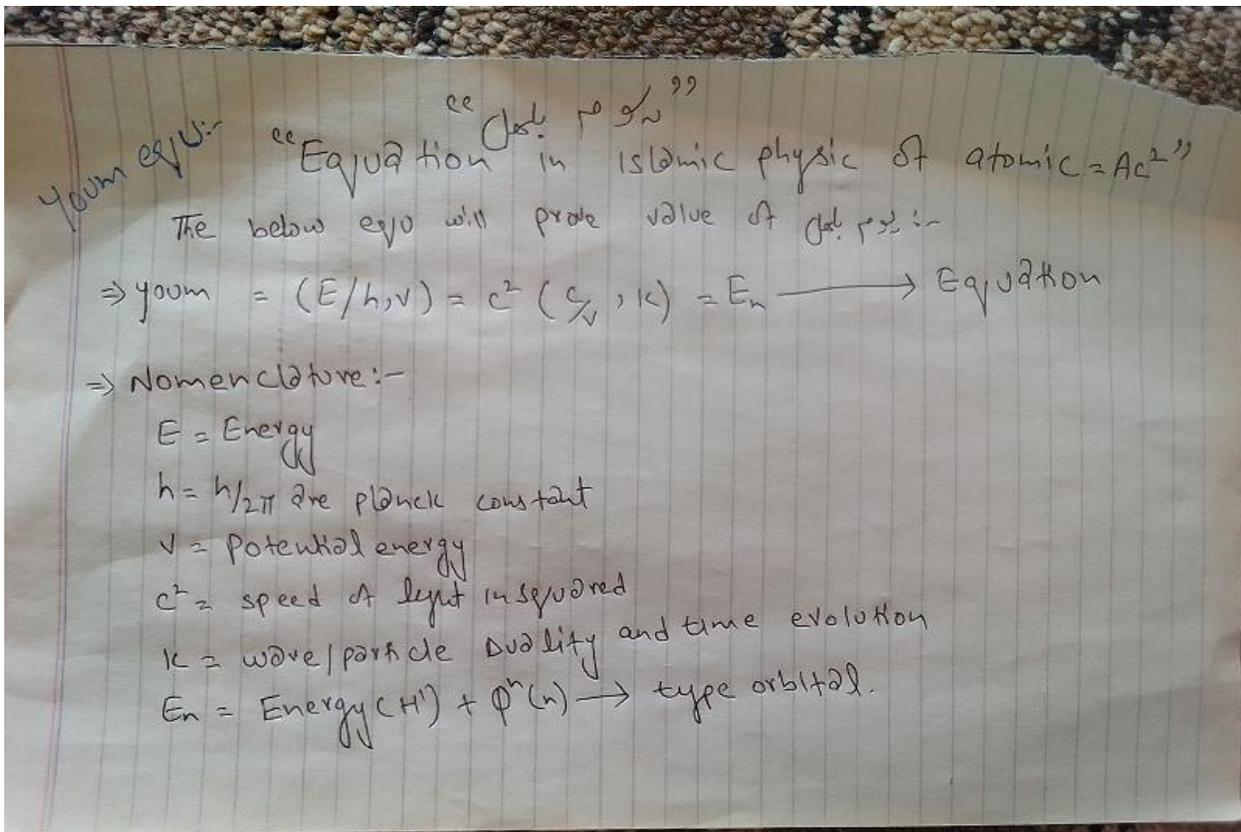 “یوم بامل”
Youm equ:-
“Equation in islamic physic of atomic = Ac²”
The below equ will prove value of یوم بامل :-
⇒ youm = (E/h,v) = c² (c/v, k) = En ⟶ Equation
⇒ Nomenclature:-
E = Energy
h = h/2π are planck constant
v = Potential energy
c² = speed of light in squared
k = wave/particle Duality and time evolution
En = Energy(H') + φⁿ(n) ⟶ type orbital.